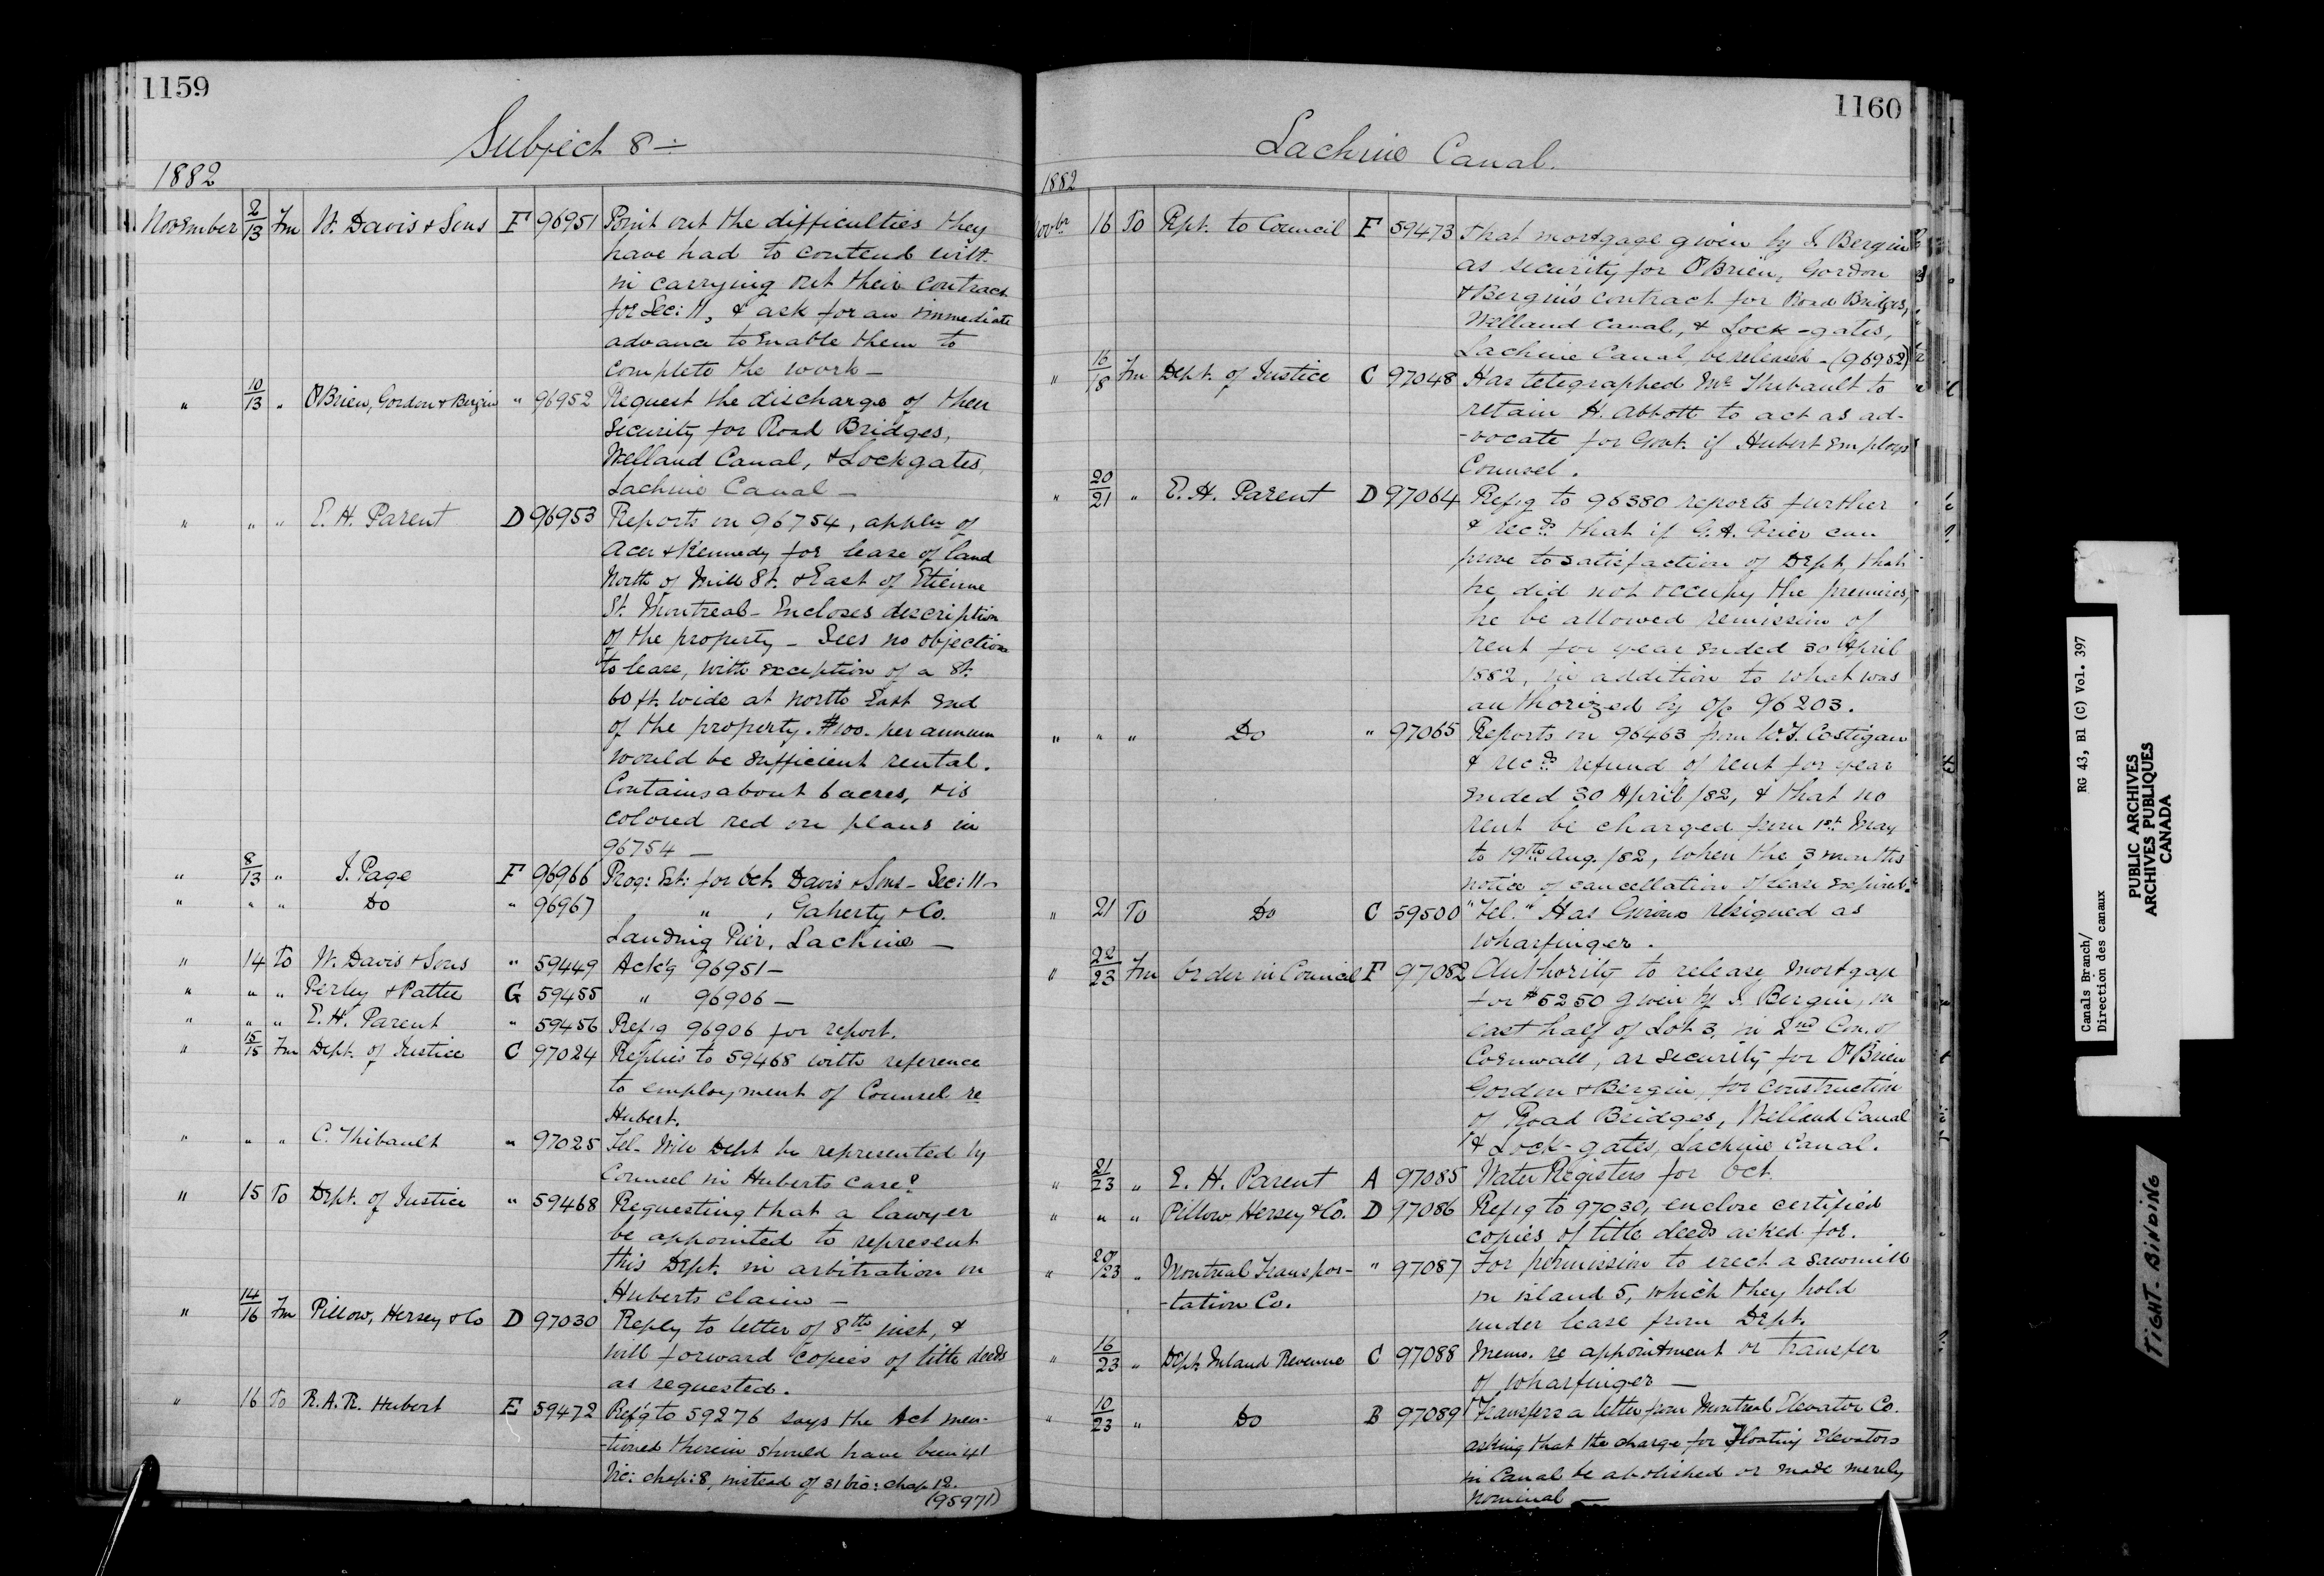 1159
Subject 8 —
1882
November 2/13 Fm W. Davis & Sons F 96951 Point out the difficulties they
have had to contend with
in carrying out their contract
for Sec: 11, & ask for an immediate
advance to enable them to
complete the work —
" 10/13 " O'Brien, Gordon & Bergin " 96952 Request the discharge of their
security for Road Bridges,
Welland Canal, & Lockgates,
Lachine Canal —
" " " E. H. Parent D 96953 Reports on 96754, appln of
Acer & Kennedy for lease of land
North of Mill St. & East of Etienne
St. Montreal — Encloses description
of the property — Sees no objection
to lease, with exception of a St.
60 ft. wide at North East end
of the property. $100. per annum
would be sufficient rental.
Contains about 6 acres, & is
colored red on plans in
96754 —
" 8/13 " J. Page F 96966 Prog: Est: for Oct. Davis & Sons — Sec: 11 —
" " " Do " 96967 " , Gaherty & Co.
Landing Pier, Lachine —
" 14 To W. Davis & Sons " 59449 Ack'g 96951 —
" " " Perley & Pattee G 59455 " 96906 —
" " " E. H. Parent " 59456 Ref'g 96906 for report.
" 15/15 Fm Dept. of Justice C 97024 Replies to 59468 with reference
to employment of Counsel re
Hubert.
" " " C. Thibault " 97025 Tel — Will Dept be represented by
Counsel in Huberts case?
" 15 To Dept. of Justice " 59468 Requesting that a lawyer
be appointed to represent
this Dept. in arbitration on
Huberts claim —
" 14/16 Fm Pillow, Hersey & Co D 97030 Reply to letter of 8th inst, &
will forward copies of title deeds
as requested.
" 16 To R. A. R. Hubert E 59472 Ref'g to 59276 says the Act men-
-tioned therein should have been 41
Vic: chap: 8, instead of 31 Vic: chap 12.
(95971)
1160
Lachine Canal.
1882
Novbr 16 To Rept. to Council F 59473 that mortgage given by J. Bergin
as security for O'Brien, Gordon
& Bergin's contract for Road Bridges,
Welland Canal, & Lock-gates,
Lachine Canal, be released — (96952)
" 16/18 Fm Dept. of Justice C 97048 Has telegraphed Mr Thibault to
retain H. Abbott to act as ad-
-vocate for Govt. if Hubert employs
Counsel.
" 20/21 " E. H. Parent D 97064 Ref'g to 96380 reports further
& recds that if G. A. Grier can
prove to satisfaction of Dept, that
he did not occupy the premises,
he be allowed remission of
rent for year ended 30 April
1882, in addition to what was
authorized by o/c 96203.
" " " Do " 97065 Reports on 96463 from W. J. Costigan
& recds refund of rent for year
ended 30 April /82, & that no
rent be charged from 1st May
to 19th Aug. /82, when the 3 months
notice of cancellation of lease expired.
" 21 To Do C 59500 "Tel." Has resigned as
Wharfinger.
" 22/23 Fm Order in Council F 97082 Authority to release Mortgage
for $5250 given by J. Bergin, on
east half of Lot 3, in 2nd Con. of
Cornwall, as security for O'Brien
Gordon & Bergin, for construction
of Road Bridges, Welland Canal
& Lock-gates, Lachine Canal.
" 21/23 " E. H. Parent A 97085 Water Registers for Oct.
" " " Pillow, Hersey & Co. D 97086 Ref'g to 97030, enclose certified
copies of title deeds asked for.
" 20/23 " Montreal Transpor- " 97087 For permission to erect a sawmill
-tation Co. on island 5, which they hold
under lease from Dept.
" 16/23 " Dept Inland Revenue C 97088 Memo. re appointment or transfer
of Wharfinger —
" 10/23 " Do B 97089 Transfers a letter from Montreal Elevator Co.
asking that the charge for Floating Elevators
in Canal be abolished or made merely
nominal —
Canals Branch/ RG 43, B1 (C) Vol. 397
Direction des canaux
PUBLIC ARCHIVES
ARCHIVES PUBLIQUES
CANADA
TIGHT BINDING